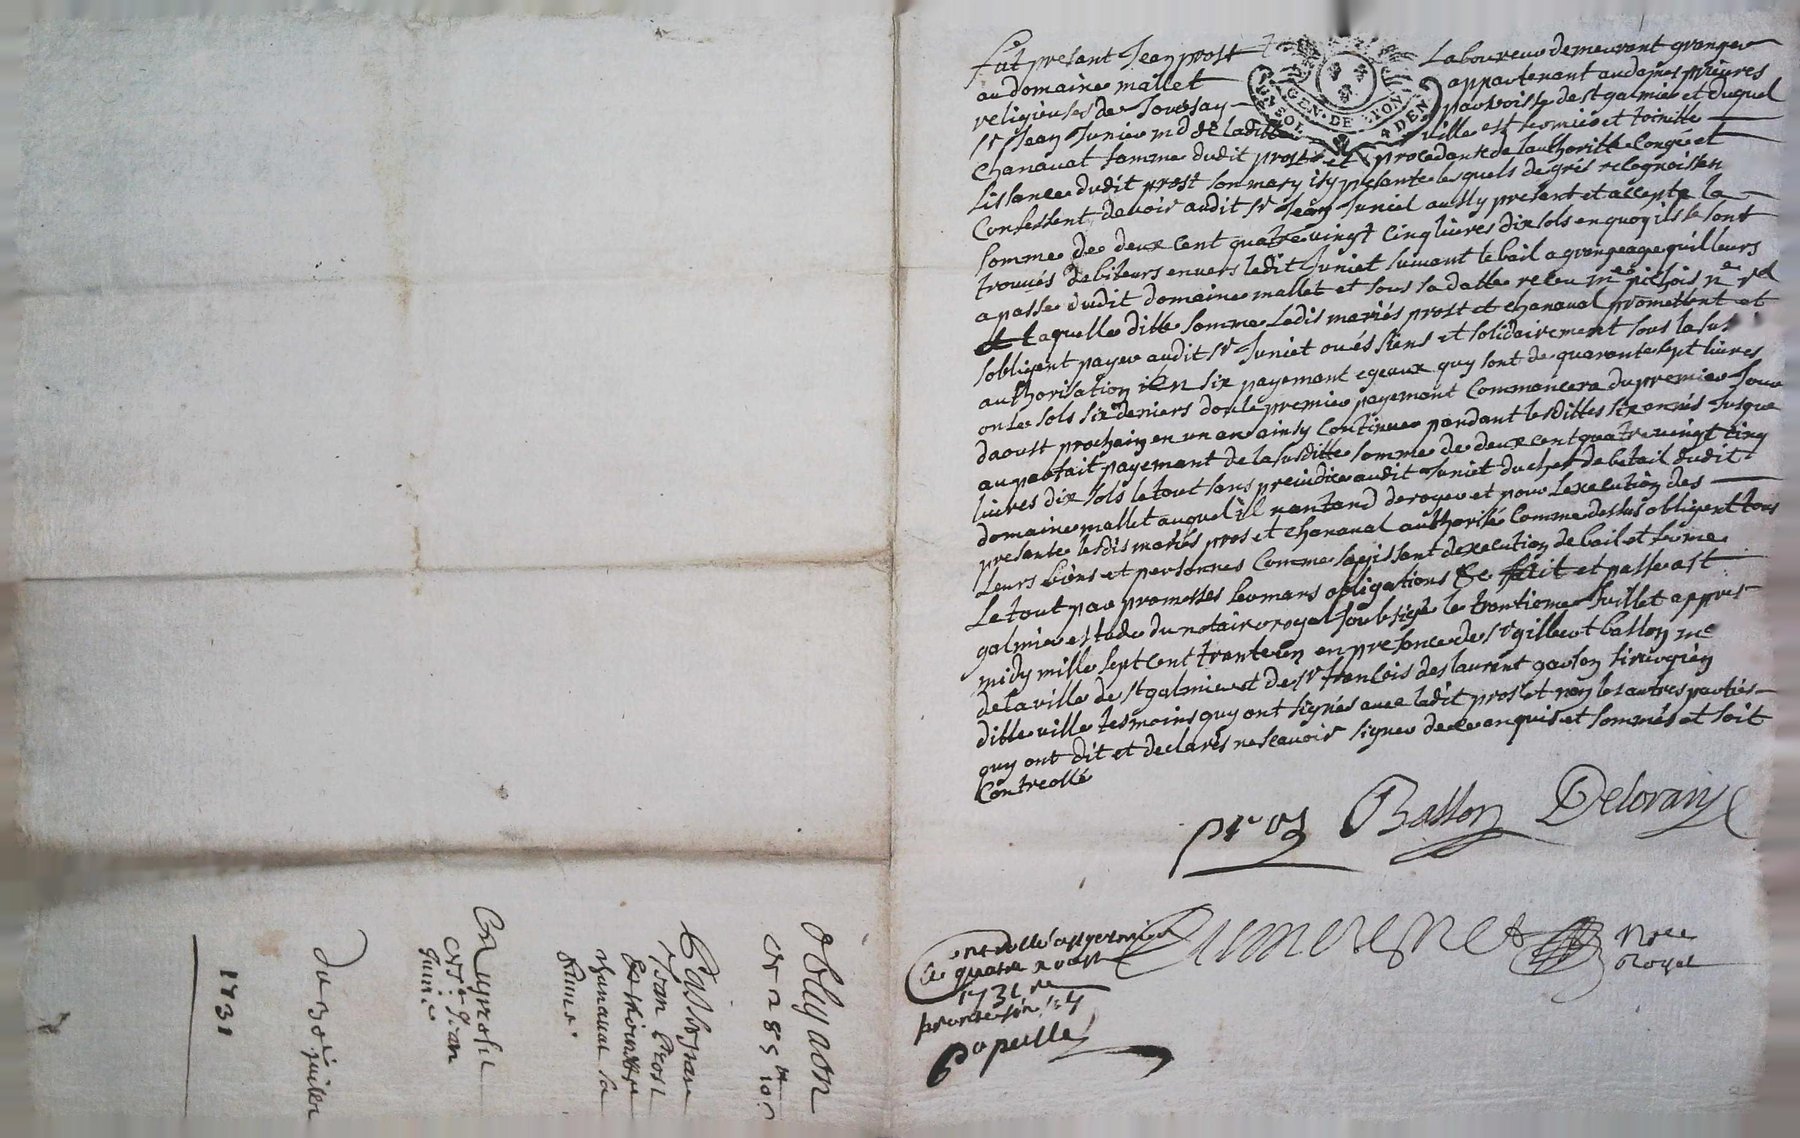 fut present Jean prost Laboureur demeurant granger
au domaine mallet appartenant au dames prieures
religieuses de Jourssay parroisse de st galmier et duquel
sr Jean Juniet md de laditte ville est fermier et toinette
chanavat famme dudit prost et procedante de lauthoritté Congé et
Lissance dudit prost son mary isy presante lesquels de gris reCognoissen
Confessent devoir audit sr Jean Juniet aussy present et accepte la
somme de deux cent quatre vingt cinq livres dix sols en quoy ils se sont
trouvés debiteurs envers ledit Juniet suivant le bail a grangeage quil leurs
a passé dudit domaine mallet et sous sa datte receu me pichois ne rd
laquelle ditte somme Ledis mariés prost et chanavat promettent et
sobligent payer audit sr Juniet ou és siens et solidairement sous la sus
authorisation en six payemant egeaux quy sont de quarante sept livres
onze sols six deniers don le premier payemant Commancera du premier Jour
daoust prochain en un an ainsy Continuer pandant lesdittes six annés Jusque
au parfait payemant de la susditte somme de deux cent quatre vingt cinq
livres dix sols le tout sans preiudice audit Juniet du chef de betail dudit
domaine mallet auquel il nantand deroger et pour Lexecution des
presante lesdis mariés pros et chanavat authorisé Comme dessus obligent tous
Leurs biens et personnes Comme sagissant dexecution de bail et ferme
Le tout par promesses sermans obligations &c fait et passé a st
galmier estude du notaire royal soubsigé le trantieme Juillet appres
midy mille sept cent trante un en presance de sr gilbert ballon me
de la ville de st galmier et de sr francois des laurent garson sirurgien
ditte ville tesmoins quy ont signés avec ledit prost et non les autres parties
quy ont dit et declarés ne scavoir signer de ce enquis et sommés et soit
Controllé
pros Ballon Delorans
nre
royal
Controllé a st germier
le quatre aoust
1731
Capelle
GEN. DE LION
UN SOL 4 DEN
Obligaon
de 285 lt 10 s
Passé par
Jean Prost
et thoinette
chanavat sa
femme
Au profit
de sr Jean
Junie
du 30e juillet
1731